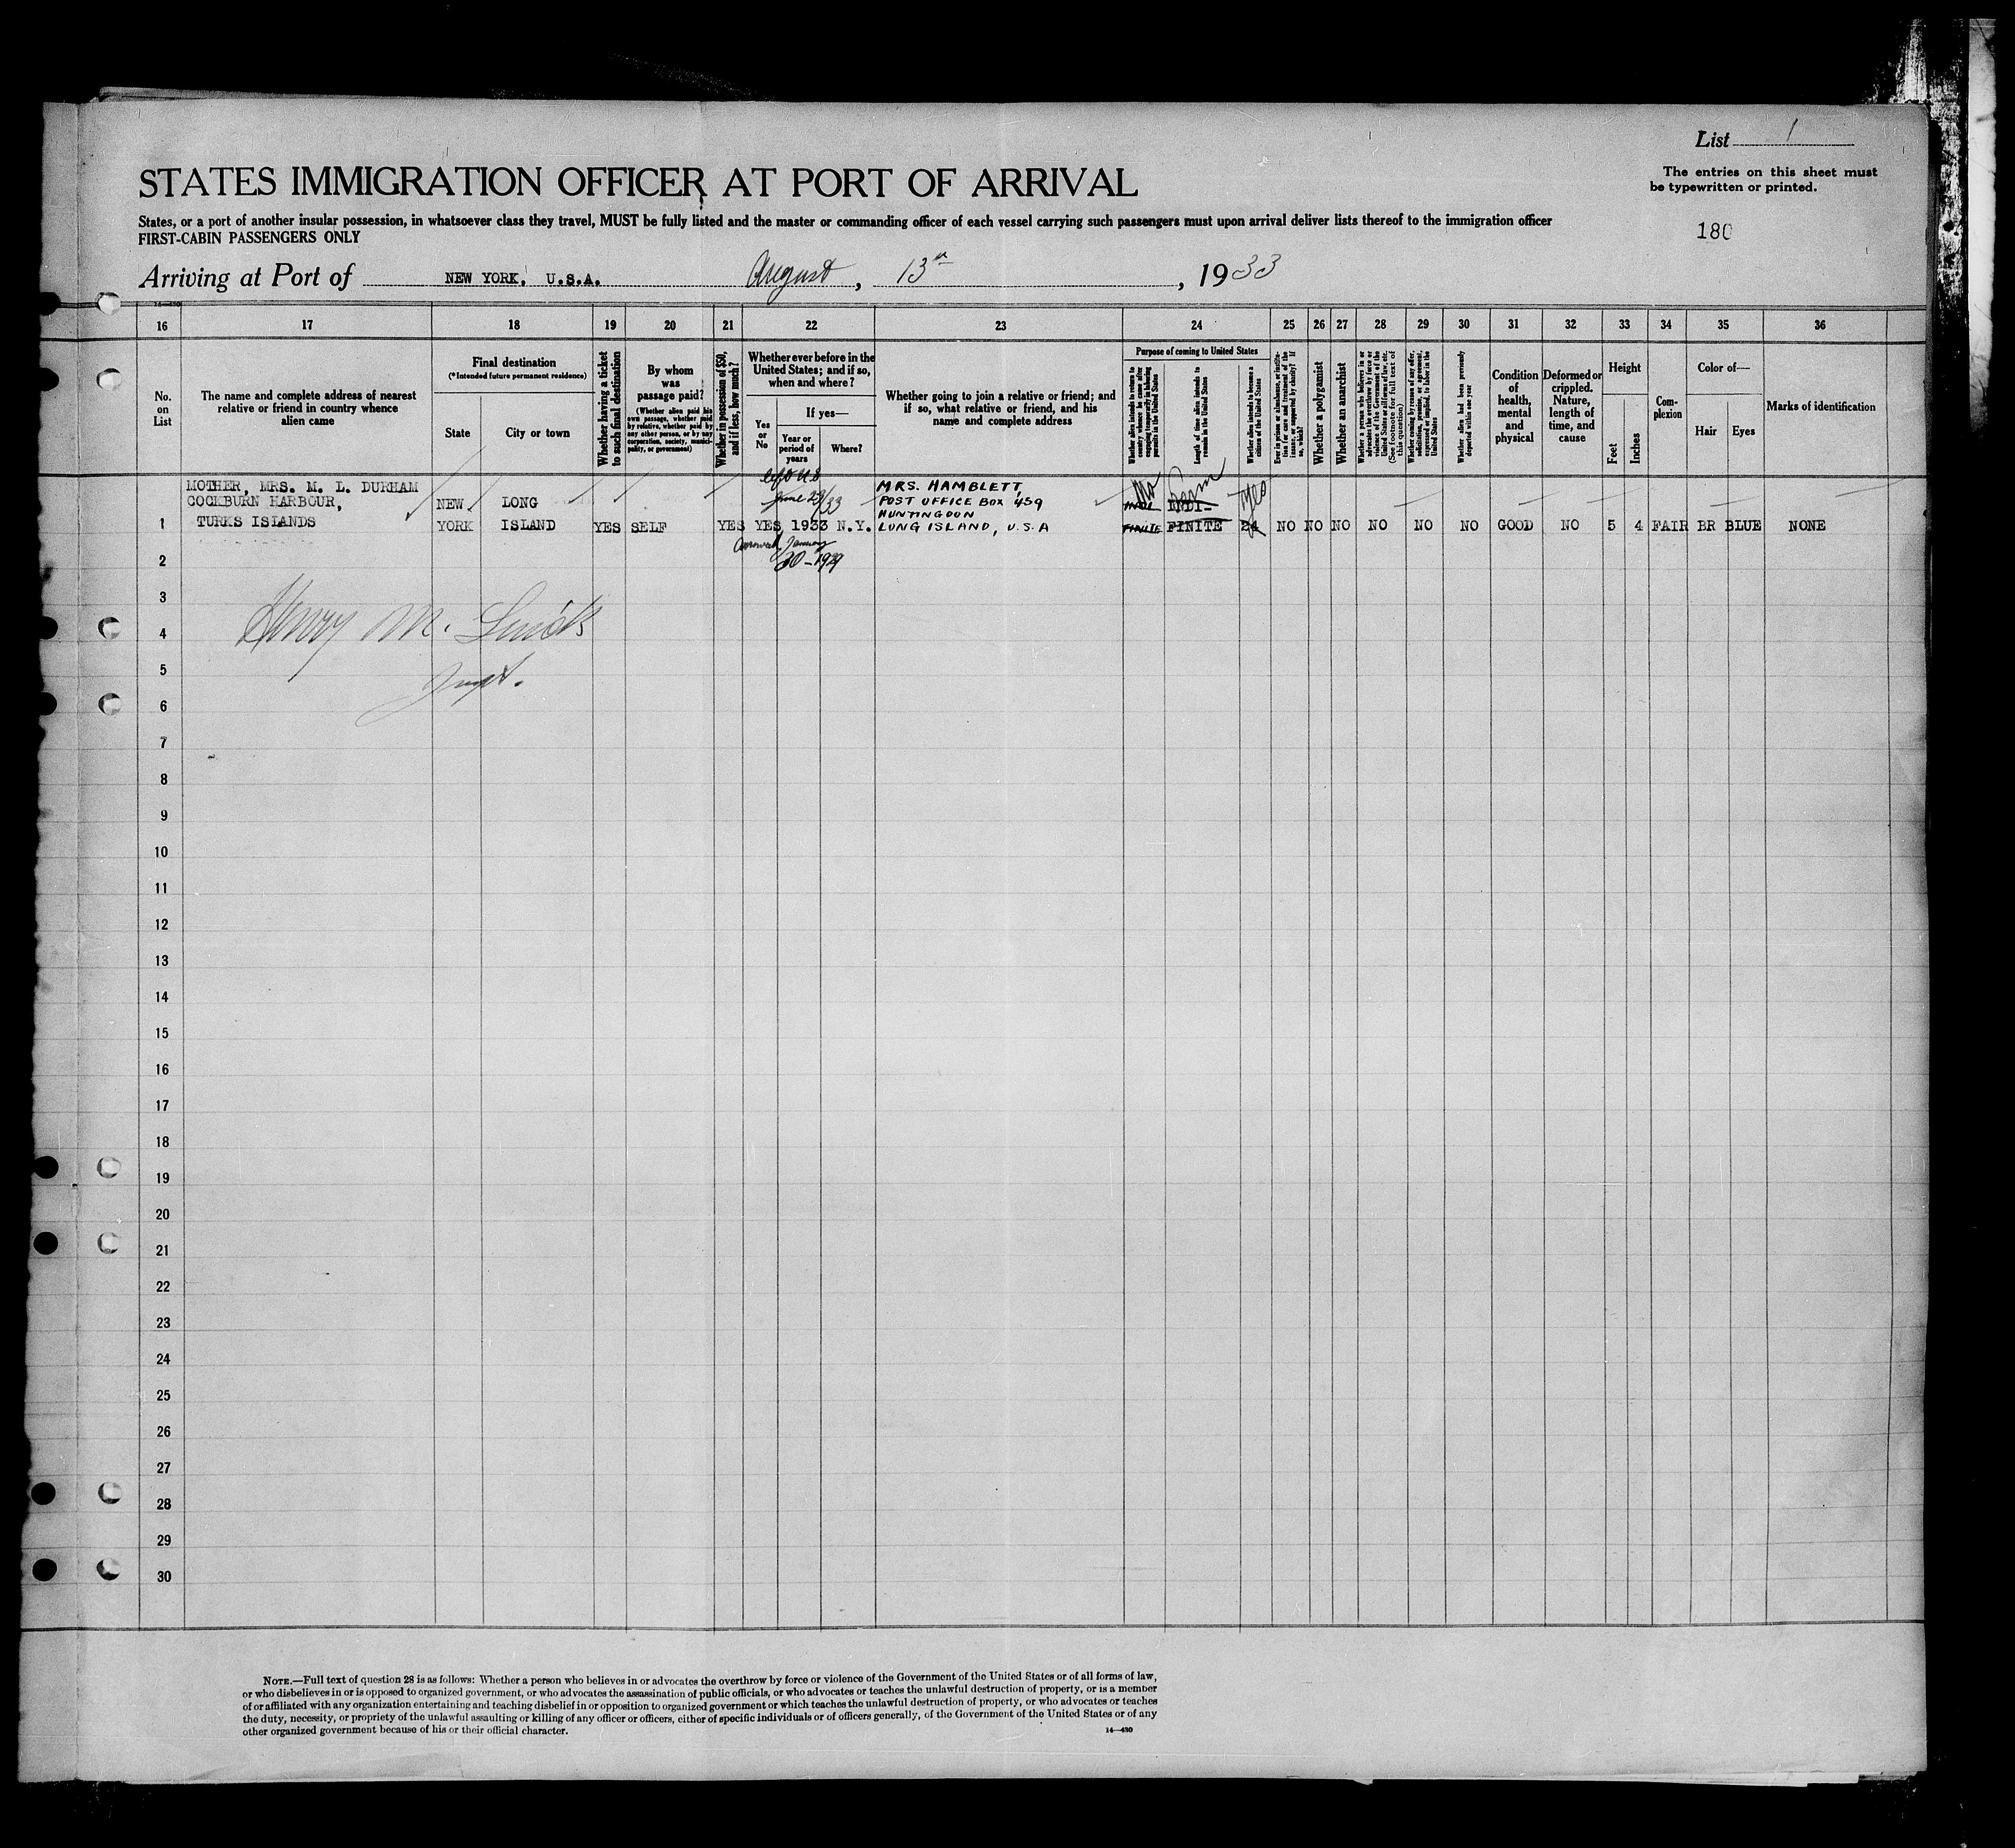 List 1
The entries on this sheet must
be typewritten or printed.
180
STATES IMMIGRATION OFFICER AT PORT OF ARRIVAL
States, or a port of another insular possession, in whatsoever class they travel, MUST be fully listed and the master or commanding officer of each vessel carrying such passengers must upon arrival deliver lists thereof to the immigration officer
FIRST-CABIN PASSENGERS ONLY
Arriving at Port of NEW YORK, U.S.A. August, 13th, 1933
14—430
16 17 18 19 20 21 22 23 24 25 26 27 28 29 30 31 32 33 34 35 36
No.
on
List
The name and complete address of nearest
relative or friend in country whence
alien came
Final destination
(*Intended future permanent residence)
State
City or town
Whether having a ticket
to such final destination
By whom
was
passage paid?
(Whether alien paid his
own passage, whether paid
by relative, whether paid by
any other person, or by any
corporation, society, munici-
pality, or government)
Whether in possession of $50,
and if less, how much?
Whether ever before in the
United States; and if so,
when and where?
Yes
or
No
If yes—
Year or
period of
years
Where?
Whether going to join a relative or friend; and
if so, what relative or friend, and his
name and complete address
Purpose of coming to United States
Whether alien intends to return to
country whence he came after
engaging temporarily in laboring
pursuits in the United States
Length of time alien intends to
remain in the United States
Whether alien intends to become a
citizen of the United States
Ever in prison or almshouse, or institu-
tion for care and treatment of the
insane, or supported by charity? If
so, which?
Whether a polygamist
Whether an anarchist
Whether a person who believes in or
advocates the overthrow by force or
violence of the Government of the
United States or all forms of law, etc.
(See footnote for full text of
this question)
Whether coming by reason of any offer,
solicitation, promise, or agreement,
expressed or implied, to labor in the
United States
Whether alien had been previously
deported within one year
Condition
of
health,
mental
and
physical
Deformed or
crippled.
Nature,
length of
time, and
cause
Height
Feet
Inches
Com-
plexion
Color of—
Hair
Eyes
Marks of identification
MOTHER, MRS. M. L. DURHAM
COCKBURN HARBOUR,
TURKS ISLANDS
NEW
YORK
LONG
ISLAND
YES SELF YES
left U.S
June 29/33
YES 1933 N.Y.
Arrived January
20-1929
MRS. HAMBLETT,
POST OFFICE BOX 459
HUNTINGDON
LONG ISLAND, U.S.A
No
INDE
FINITE
Perm
INDI-
FINITE
Yes
24
NO NO NO NO NO NO GOOD NO 5 4 FAIR BR BLUE NONE
1
2
3
Henry M.
4
5
Inspt.
6
7
8
9
10
11
12
13
14
15
16
17
18
19
20
21
22
23
24
25
26
27
28
29
30
NOTE.—Full text of question 28 is as follows: Whether a person who believes in or advocates the overthrow by force or violence of the Government of the United States or of all forms of law,
or who disbelieves in or is opposed to organized government, or who advocates the assassination of public officials, or who advocates or teaches the unlawful destruction of property, or is a member
of or affiliated with any organization entertaining and teaching disbelief in or opposition to organized government or which teaches the unlawful destruction of property, or who advocates or teaches
the duty, necessity, or propriety of the unlawful assaulting or killing of any officer or officers, either of specific individuals or of officers generally, of the Government of the United States or of any
other organized government because of his or their official character.
14—430